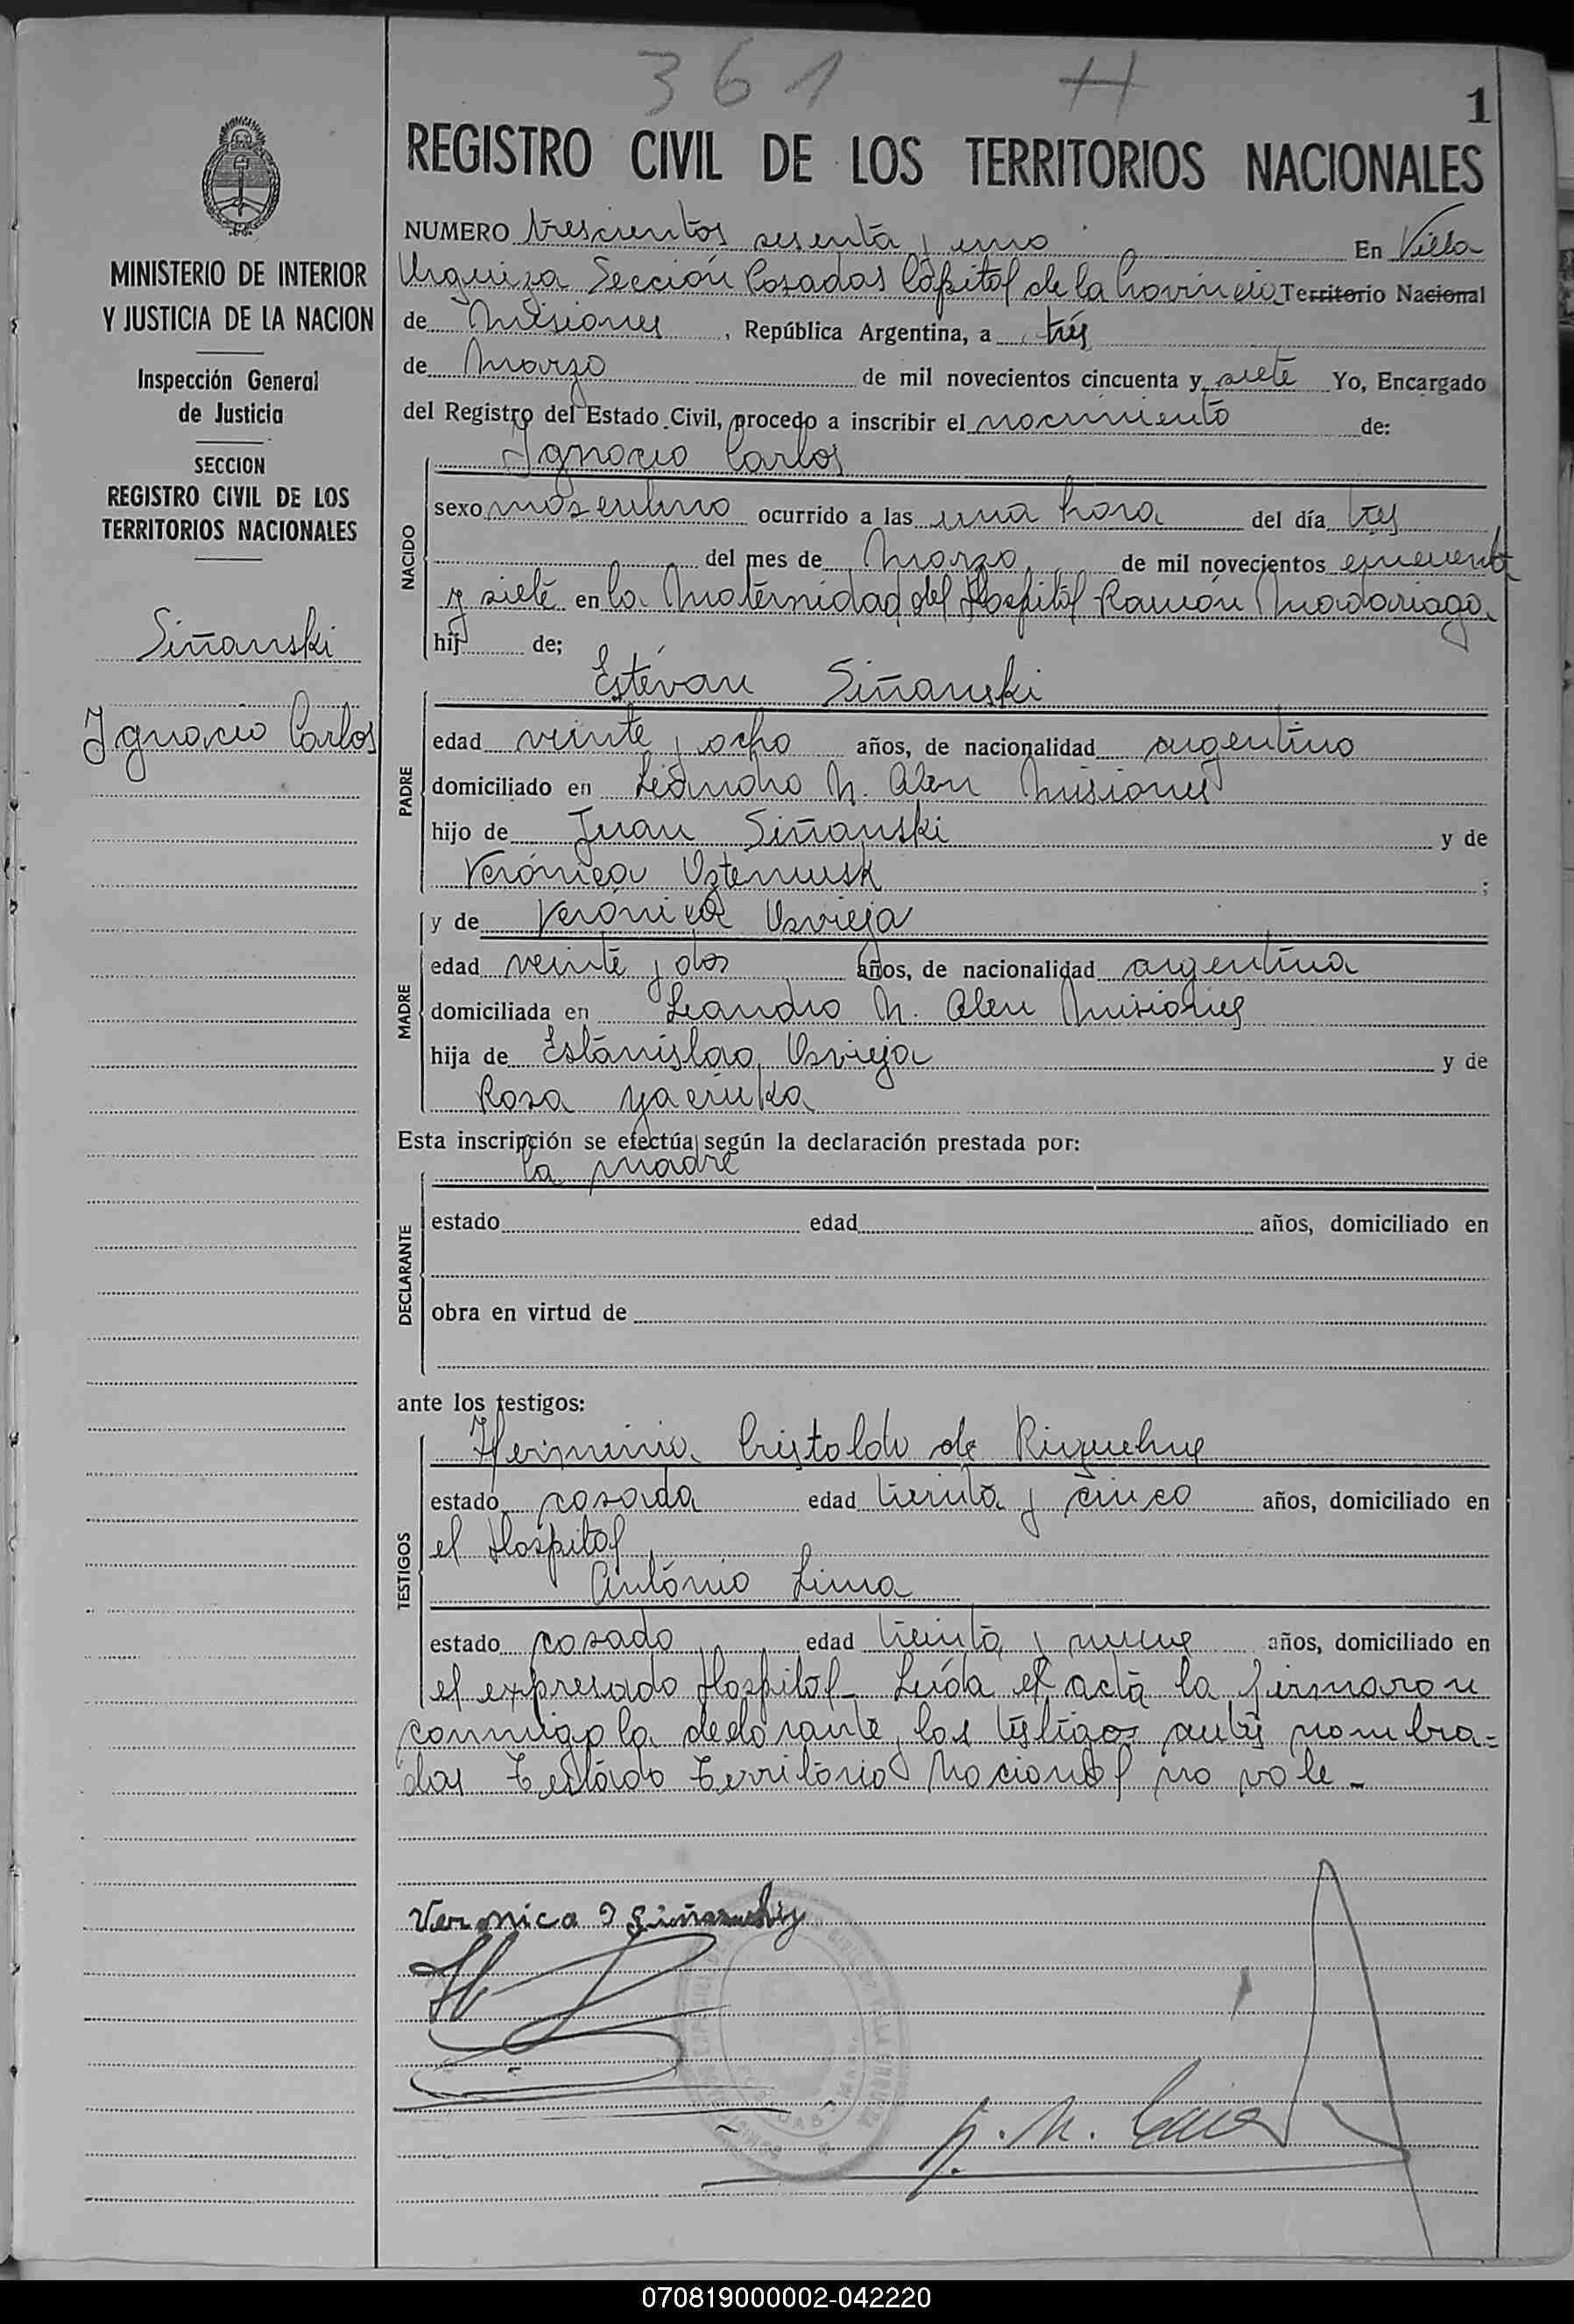 361 H
1
REGISTRO CIVIL DE LOS TERRITORIOS NACIONALES
MINISTERIO DE INTERIOR
Y JUSTICIA DE LA NACION
Inspección General
de Justicia
SECCION
REGISTRO CIVIL DE LOS
TERRITORIOS NACIONALES
Siñanski
Ignacio Carlos
NUMERO trescientos sesenta y uno En Villa
Urquiza Sección Posadas Capital de la Provincia Territorio Nacional
de Misiones, República Argentina, a tres
de Marzo de mil novecientos cincuenta y siete Yo, Encargado
del Registro del Estado Civil, procedo a inscribir el nacimiento de:
NACIDO
Ignacio Carlos
sexo masculino ocurrido a las una hora del día tres
del mes de Marzo de mil novecientos cincuenta
y siete en la Maternidad del Hospital Ramón Madariaga
hij de;
PADRE
Estevan Siñanski
edad veinte y ocho años, de nacionalidad argentino
domiciliado en Leandro N. Alen Misiones
hijo de Juan Siñanski y de
Verónica ;
MADRE
y de Verónica Usvieja
edad veinte y dos años, de nacionalidad argentina
domiciliada en Leandro N. Alen Misiones
hija de Estanislao Usvieja y de
Rosa
Esta inscripción se efectúa según la declaración prestada por:
DECLARANTE
la madre
estado edad años, domiciliado en
obra en virtud de
ante los testigos:
TESTIGOS
Herminia Cristaldo de Riquelme
estado casada edad treinta y cinco años, domiciliado en
el Hospital
Antonio Lima
estado casado edad treinta y nueve años, domiciliado en
el expresado Hospital- Leída el acta la firmaron
conmigo la declarante, los testigos antes nombra=
dos Testado Territorio Nacional no vale-
Veronica
070819000002-042220